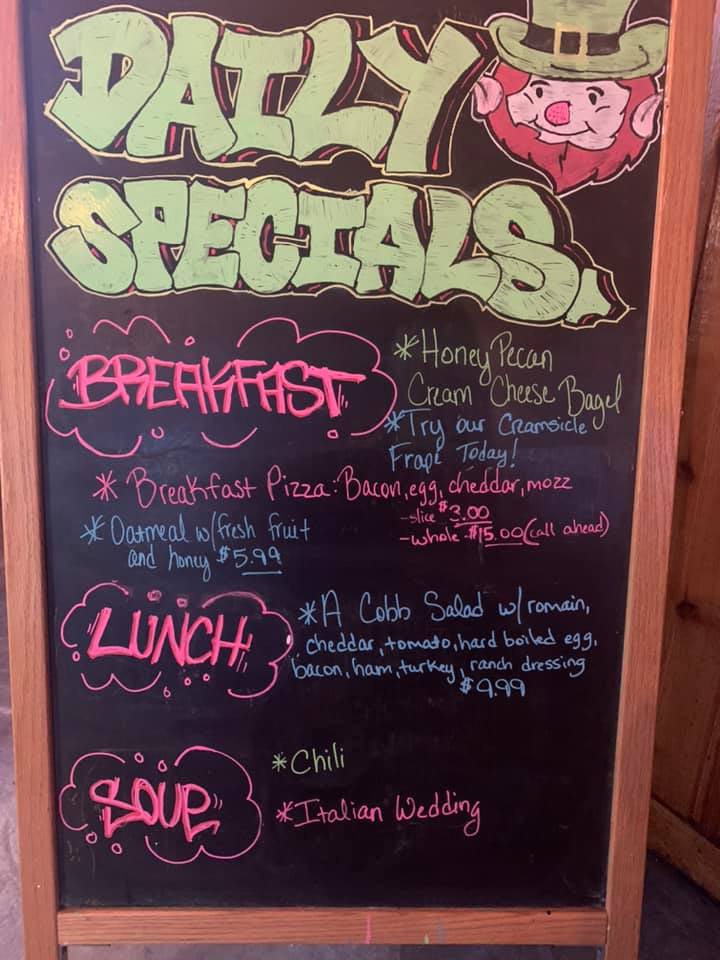 DAILY
SPECIALS.
BREAKFAST
*Honey Pecan
Cream Cheese Bagel
*Try our Cramsicle
Frape Today!
* Breakfast Pizza: Bacon, egg, cheddar, mozz
-slice $3.00
-whole $15.00 (call ahead)
*Oatmeal w/fresh fruit
and honey $5.99
LUNCH
*A Cobb Salad w/romain,
cheddar, tomato, hard boiled egg,
bacon, ham, turkey, ranch dressing
$9.99
SOUP
*Chili
*Italian Wedding